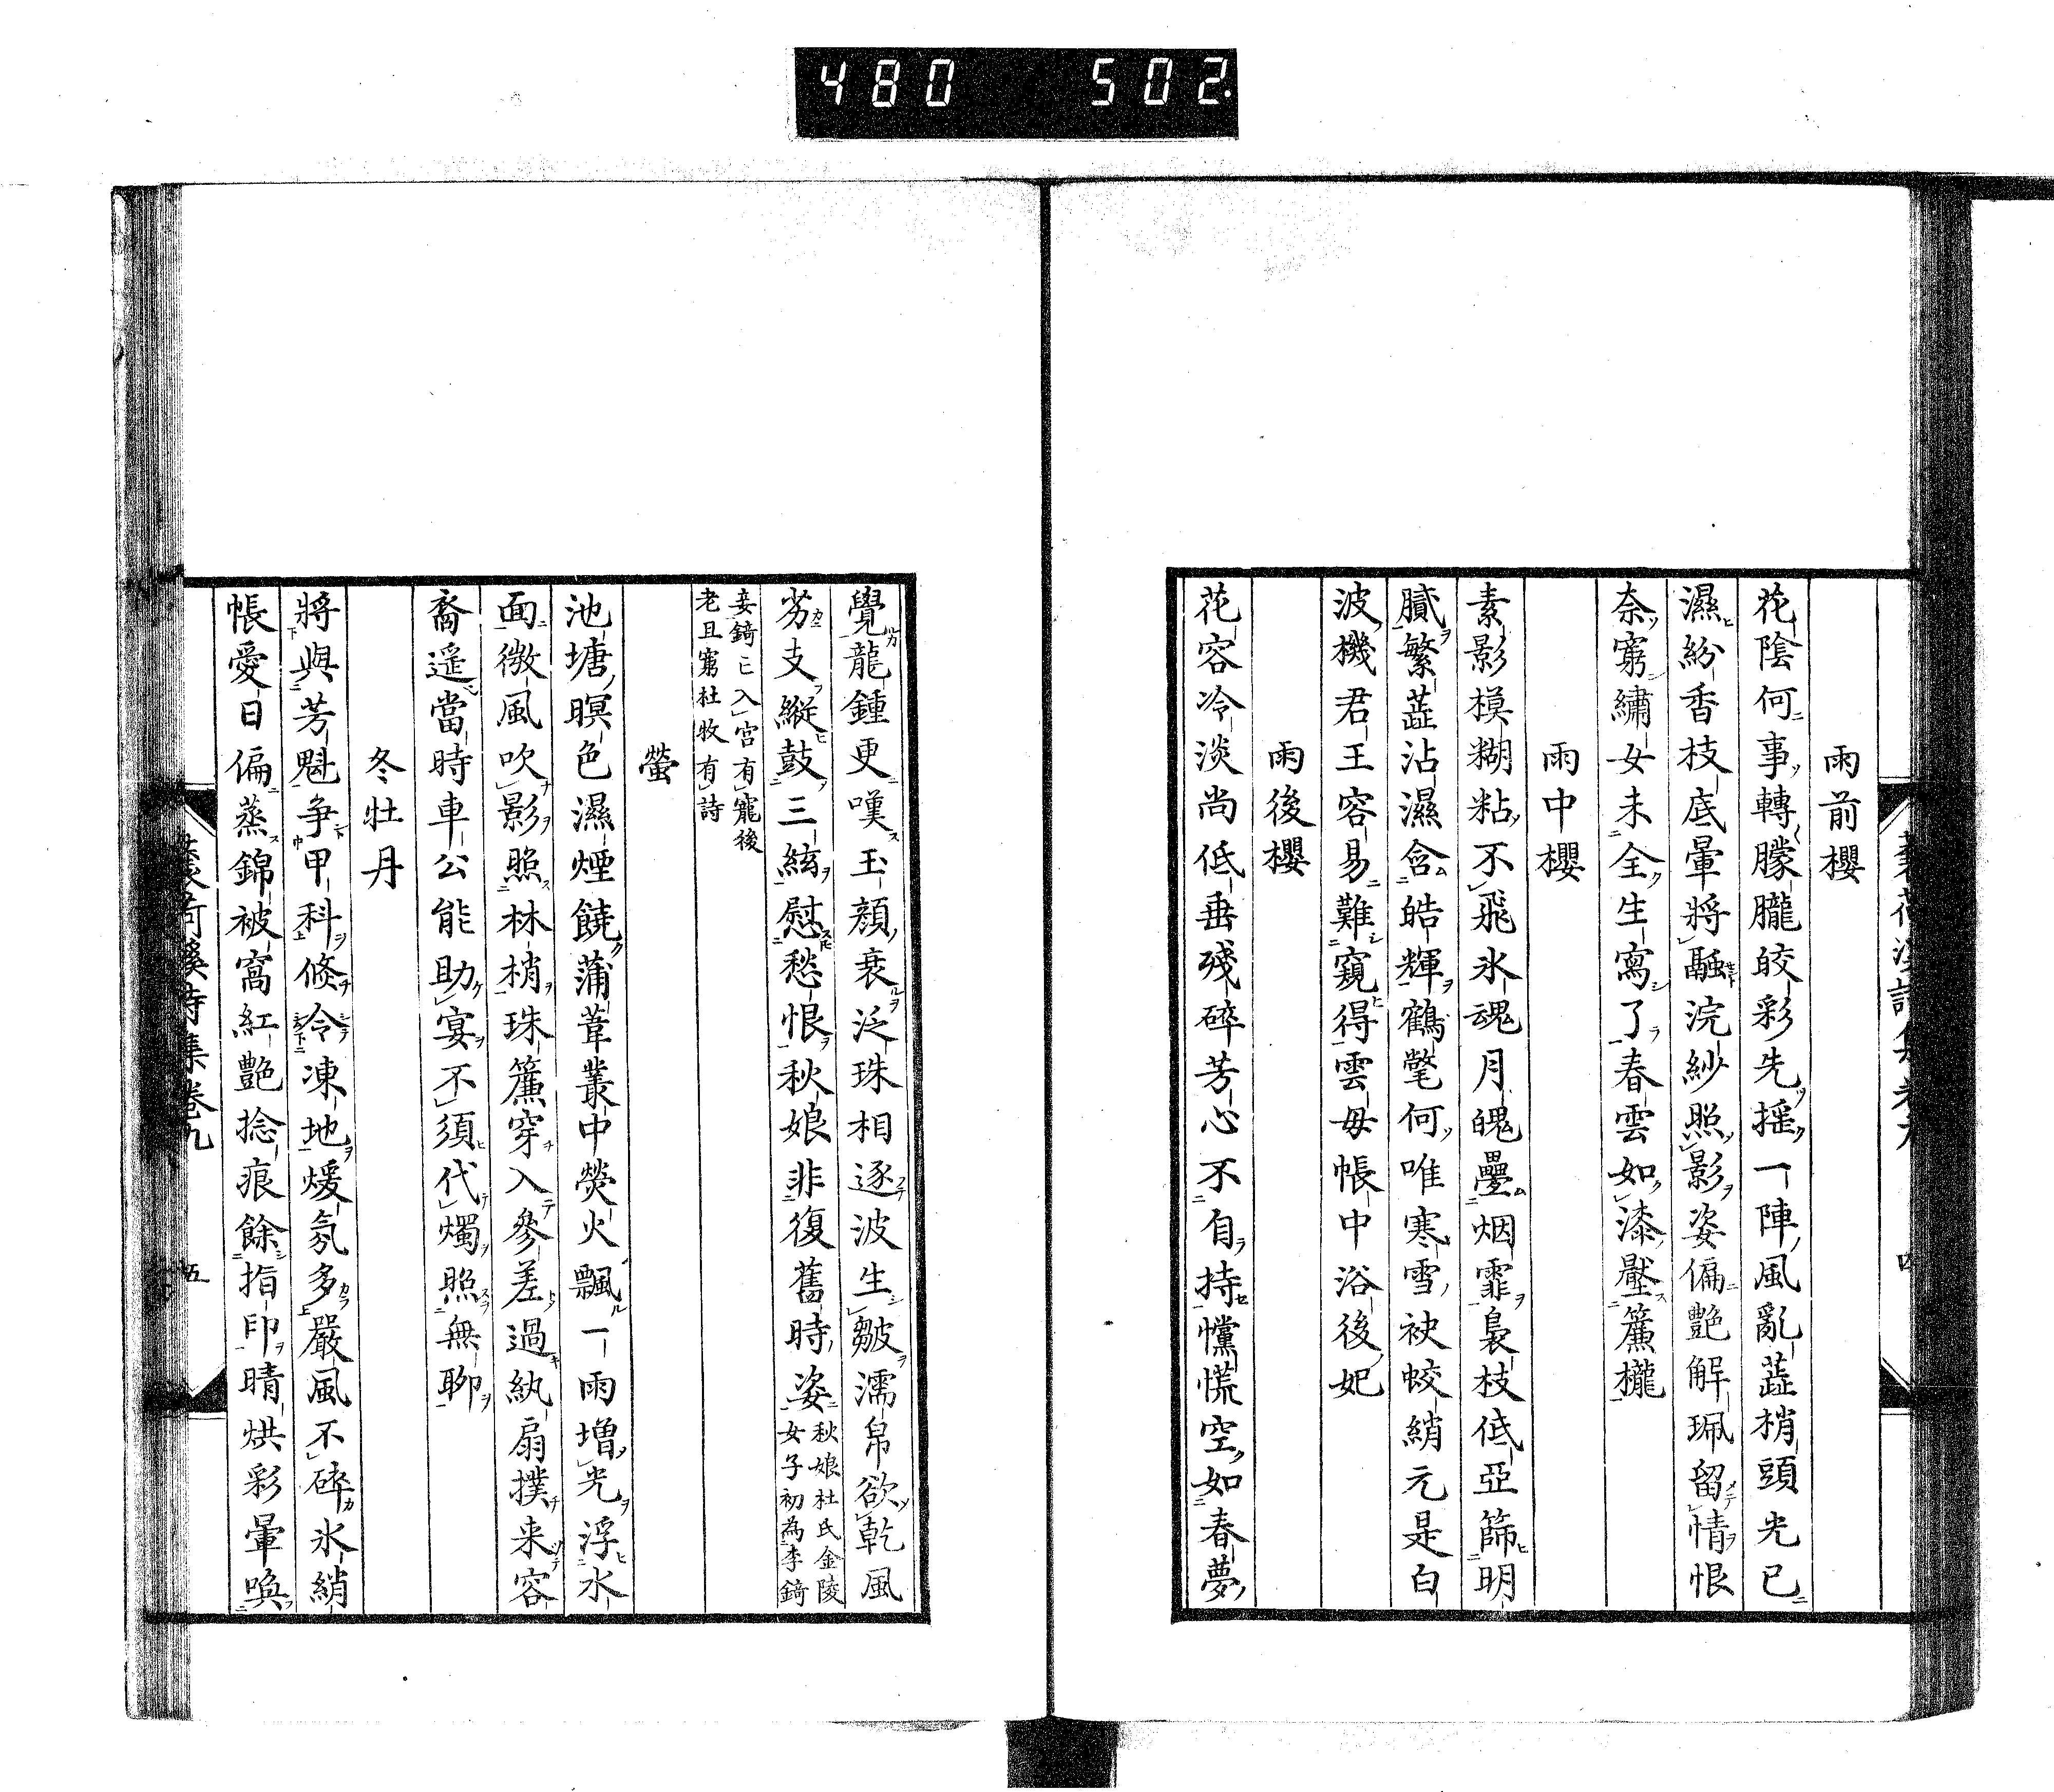 480 502
雨前櫻
花陰何事轉朦朧皎彩先揺一陣風亂蕋梢頭光已
濕紛香枝底暈將融浣紗照影姿偏艶解珮留情恨
奈窮繡女未全生寫了春雲如漆壓簾櫳
雨中櫻
素影模糊粘不飛氷魂月魄疊烟霏裊枝低亞篩明
膩繁蕋沾濕含皓輝鶴氅何唯寒雪袂蛟綃元是白
波機君王容易難窺得雲母帳中浴後妃
雨後櫻
花容冷淡尚低垂殘碎芳心不自持戃慌空如春夢
覺龍鍾更嘆玉顔衰泛珠相逐波生皺濡帛欲乾風
劣支縦鼓三絃慰愁恨秋娘非復舊時姿秋娘杜氏金陵女子初為李錡
妾錡亡入宮有寵後老且窮杜牧有詩
螢
池塘暝色濕煙饒蒲葦叢中熒火飄一雨増光浮水
面微風吹影照林梢珠簾穿入參差過紈扇撲来容
裔遙當時車公能助宴不須代燭照無聊
冬牡丹
將與芳魁争甲科倏令凍地煖氛多嚴風不碎氷綃
帳愛日偏蒸錦被窩紅艶捻痕餘指印晴烘彩暈喚
詩集巻九
五